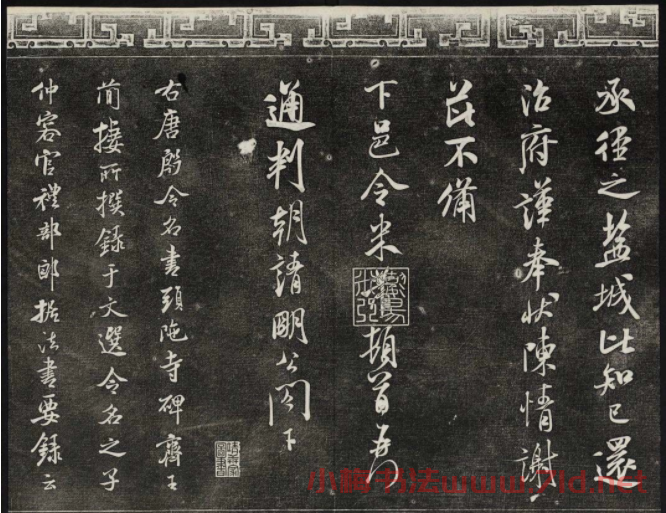 承径之盐城比知已还
治府谨奉状陈情谢
茲不備
下邑令米 頓首再
通判朝請明公閣下
右唐殷令名書頭陁寺碑齊王
簡棲所撰録于文選令名之子
仲容官禮部郎据法書要録云
小鹤书法www.7ld.net